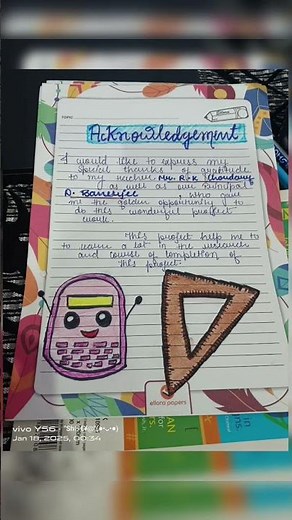 TOPIC
Acknowledgement
I would like to express my
special thanks of gratitude
to my teacher Mrs. Rik Choudary
as well as our Principal
D. Banerjee who gave
me the golden opportunity to
do this wonderful project
work.
This project help me to
to learn a lot in the
and course of completion of
this project.
ellora papers
vivo Y56
Jan 18, 2025, 00:34